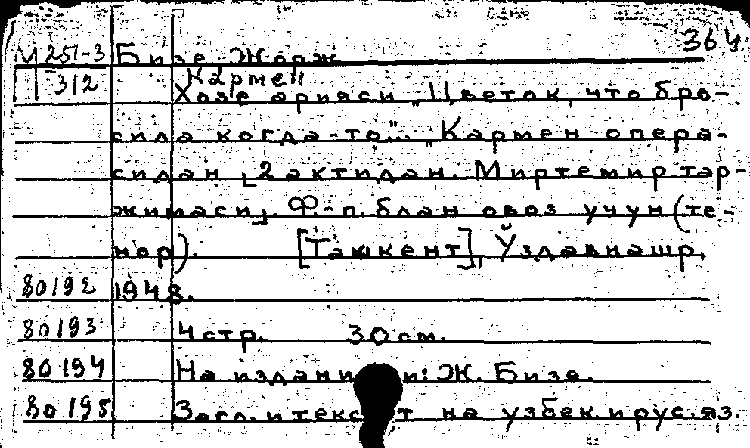 364
М 251-3 Бизе, Жорж
312 Кармен
Хозе арияси „Цветок, что бро-
сила когда-то"... „Кармен опера-
сидан [2 актидан. Миртемир тар-
жимаси]. Ф.-п. блан овоз учун (те-
нор). [Ташкент], Ўздавнашр,
80192 1948.
80193 4 стр. 30 см.
80194 На издании: Ж. Бизе.
80195 Загл. и текст на узбек. и рус. яз.